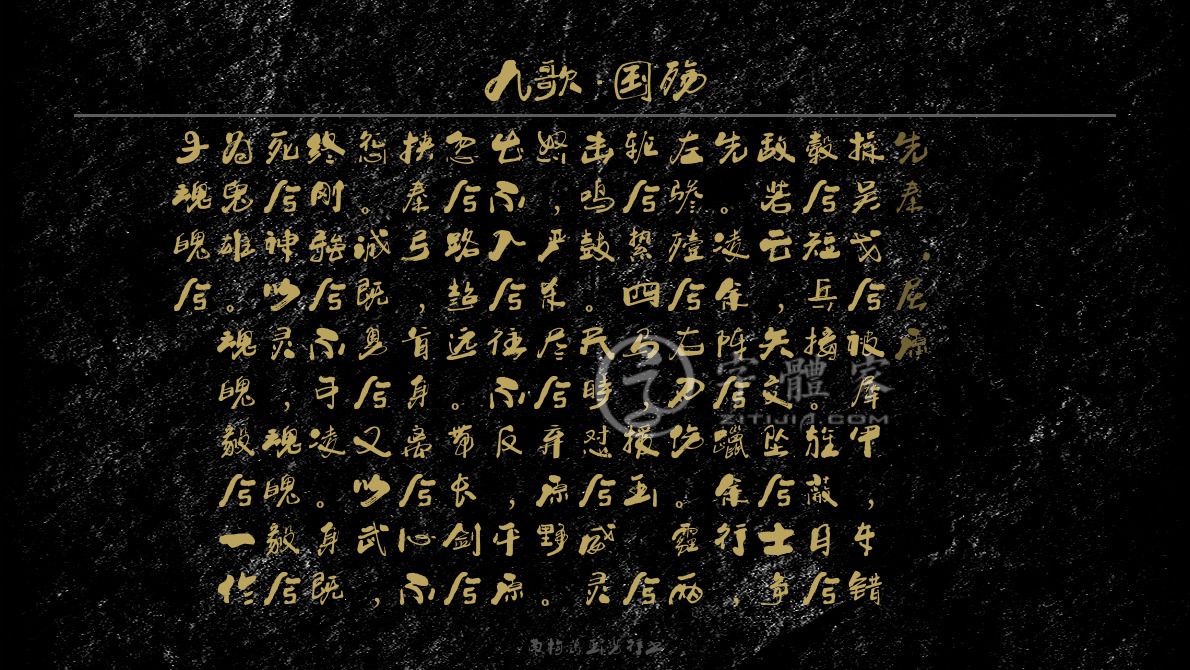 九歌·国殇
先秦，屈原
操吴戈兮被犀甲，车错
毂兮短兵接。旌蔽日兮
敌若云，矢交坠兮士争
先。凌余阵兮躐余行，
左骖殪兮右刃伤。霾两
轮兮絷四马，援玉 兮
击鸣鼓。天时怼兮威灵
怒，严杀尽兮弃原野。
出不入兮往不反，平原
忽兮路超远。带长剑兮
挟秦弓，首身离兮心不
惩。诚既勇兮又以武，
终刚强兮不可凌。身既
死兮神以灵，魂魄毅兮
为鬼雄。魂魄毅兮一作
子魂魄兮
字體家
ZITIJIA.COM